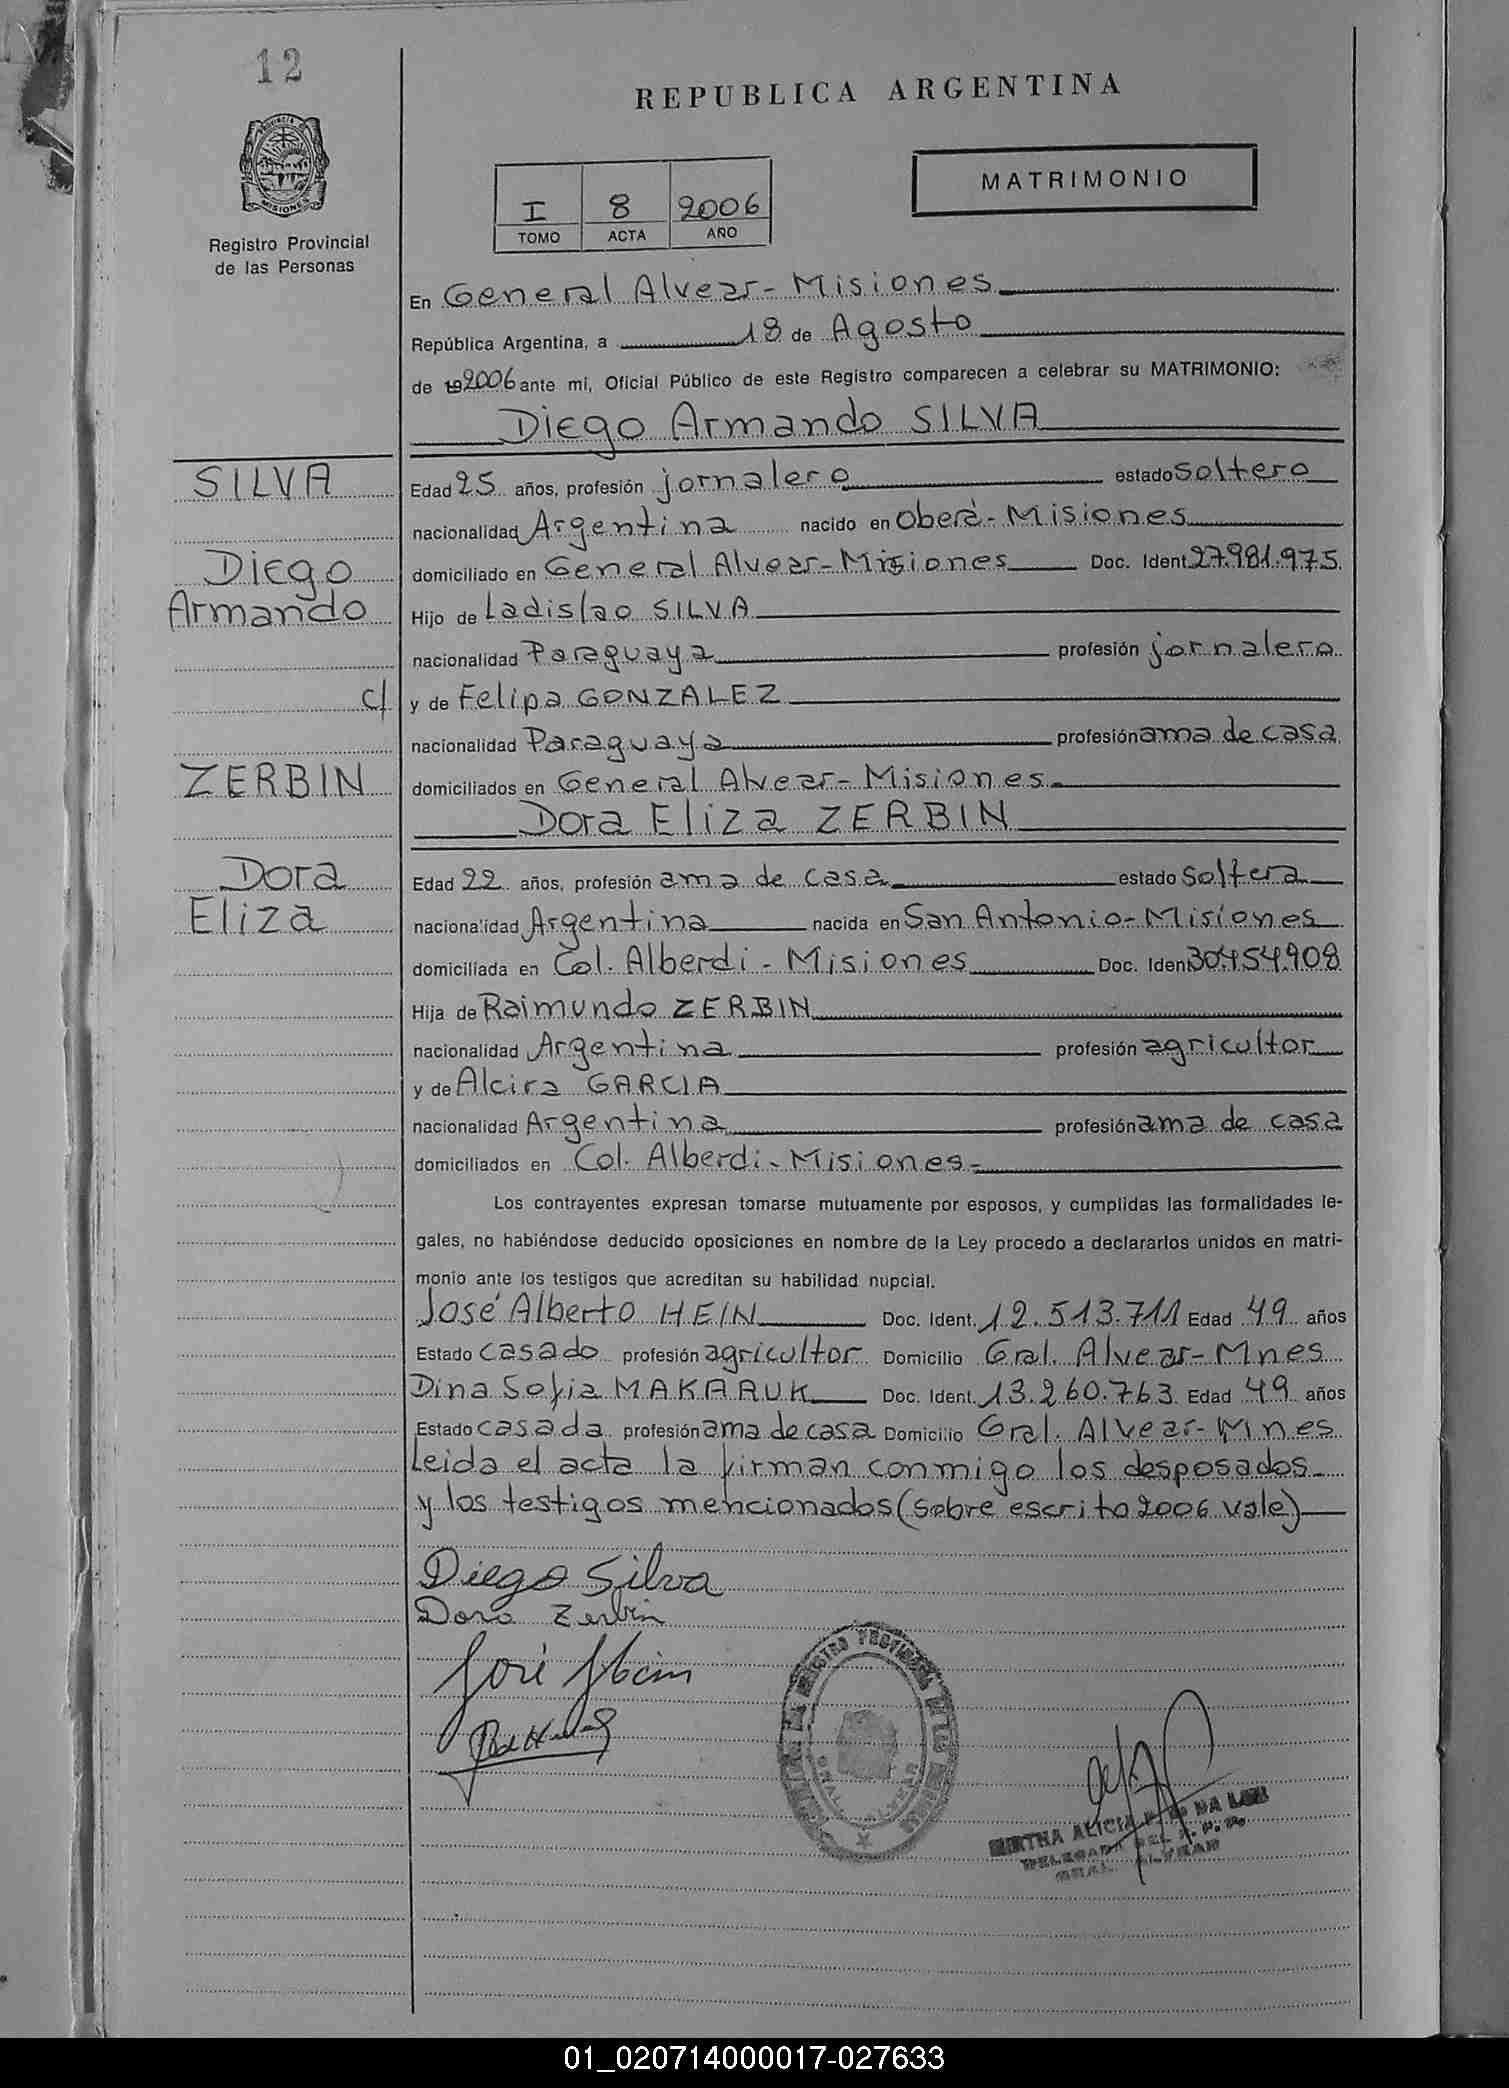 12
REPUBLICA ARGENTINA
MATRIMONIO
I 8 2006
TOMO ACTA AÑO
Registro Provincial
de las Personas
En General Alvear - Misiones
República Argentina, a 18 de Agosto
de 192006 ante mí, Oficial Público de este Registro comparecen a celebrar su MATRIMONIO:
Diego Armando SILVA
SILVA
Edad 25 años, profesión jornalero estado soltero
nacionalidad Argentina nacido en Oberá - Misiones
Diego
domiciliado en General Alvear - Misiones Doc. Ident 27.981.975.
Armando
Hijo de Ladislao SILVA
nacionalidad Paraguaya profesión jornalero
c/
y de Felipa GONZALEZ
nacionalidad Paraguaya profesión ama de casa
ZERBIN
domiciliados en General Alvear - Misiones.
Dora Eliza ZERBIN
Dora
Edad 22 años, profesión ama de casa estado soltera
Eliza
nacionalidad Argentina nacida en San Antonio - Misiones
domiciliada en Col. Alberdi - Misiones Doc. Iden 30.454.908
Hija de Raimundo ZERBIN
nacionalidad Argentina profesión agricultor
y de Alcira GARCIA
nacionalidad Argentina profesión ama de casa
domiciliados en Col. Alberdi - Misiones -
Los contrayentes expresan tomarse mutuamente por esposos, y cumplidas las formalidades le-
gales, no habiéndose deducido oposiciones en nombre de la Ley procedo a declararlos unidos en matri-
monio ante los testigos que acreditan su habilidad nupcial.
José Alberto HEIN Doc. Ident. 12.513.711 Edad 49 años
Estado casado profesión agricultor Domicilio Gral. Alvear - Mnes
Dina Sofia MAKARUK Doc. Ident. 13.260.763 Edad 49 años
Estado casada profesión ama de casa Domicilio Gral. Alvear - Mnes
Leida el acta la firman conmigo los desposados
y los testigos mencionados (sobre escrito 2006 vale)
Diego Silva
Dora Zerbin
José Hein
GRAL. ALVEAR
01_020714000017-027633